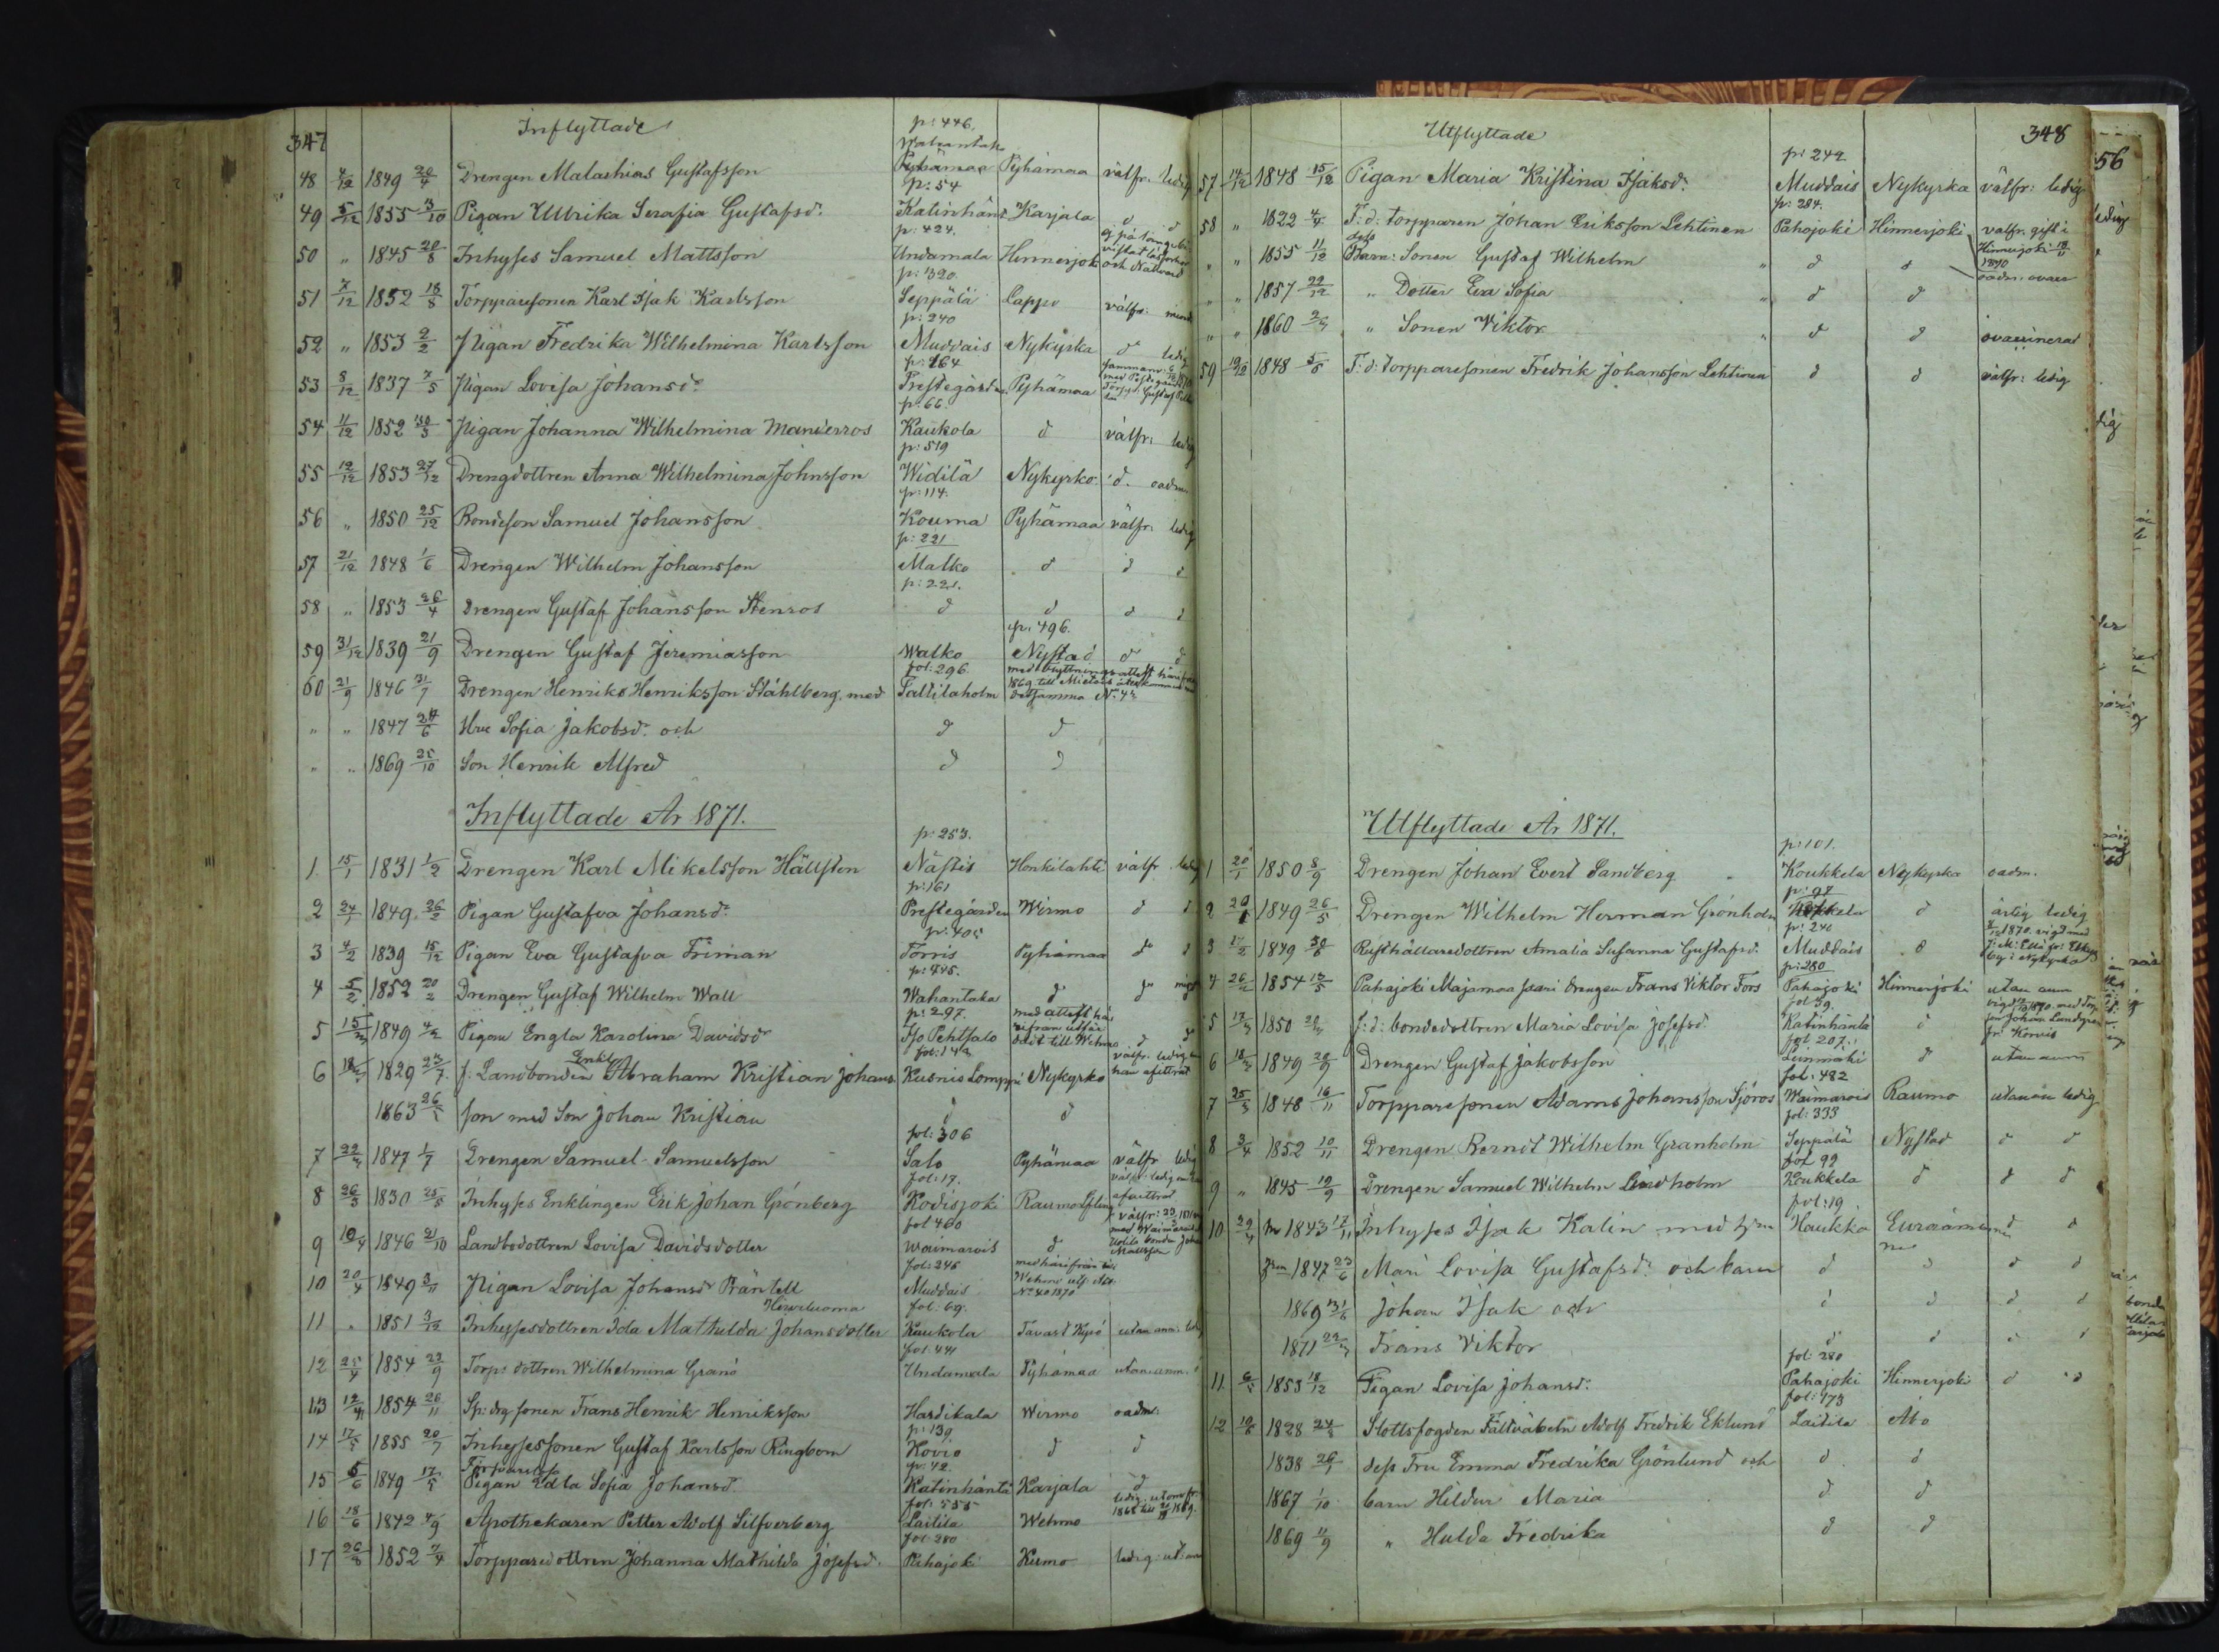 347
Inflyttade
p: 446.
48 4/12 1849 20/4 Drengen Malachias Gustafsson Pyhämaa Pyhämaa välfr. ledig
p: 54
49 5/12 1855 3/10 Pigan Ullrika Serafia Gustafsd: Katinhänt Karjala d d
p: 424.
50 " 1845 20/8 Inhyses Samuel Mattsson Undamala Hinnerjoki
p: 320
51 7/12 1852 18/8 Torpparesonen Karl Isak Karlsson Seppälä Lappo välfr:
p: 240
52 " 1853 2/2 Pigan Fredrika Wilhelmina Karlsson Muddais Nykyrka d ledig
p: 164
53 8/12 1837 7/5 Pigan Lovisa Johansd: Prestegården Pyhämaa
p: 66.
54 11/12 1852 30/3 Pigan Johanna Wilhelmina Manderros Kaukola d välfr: ledig
p: 519
55 12/12 1853 27/12 Drengdottren Anna Wilhelmina Johnsson Widilä Nykyrko d. oadm
p: 114.
56 " 1850 25/12 Bondeson Samuel Johansson Kouma Pyhämaa välfr: ledig
p: 221
57 21/12 1848 1/6 Drengen Wilhelm Johansson Malko d d d
p: 221.
58 " 1853 26/4 Drengen Gustaf Johansson Stenros d d d d
p. 496.
59 31/12 1839 21/9 Drengen Gustaf Jeremiasson Walko Nystad d d
fol: 296.
60 21/9 1846 31/7 Drengen Henriks Henriksson Ståhlberg, med Taltilaholm
" " 1847 24/6 Hru Sofia Jakobsd: och d d
" " 1869 25/10 Son Henrik Alfred d d
Inflyttade År 1871.
p: 253.
1 15/1 1831 1/2 Drengen Karl Mikelsson Hällsten Nästis Honkilahti välfr. ledig
p: 161
2 24/1 1849 26/2 Pigan Gustafva Johansd: Prestegården Wirmo d d
p: 405
3 4/2 1839 15/12 Pigan Eva Gustafva Friman Torris Pyhämaa d d
p: 445.
4 5/2 1852 20/2 Drengen Gustaf Wilhelm Wall Wahantaka d d
p: 297.
5 15/3 1849 4/2 Pigan Engla Karolina Davidsd Iso Pehtsalo
6 18/3 1829 23/7 f. Landbonden Enkl. Abraham Kristian Johans Kusnis Lomppi Nykyrko
1863 26/5 son med Son Johan Kristian d d
fol: 306
7 22/3 1847 1/7 Drengen Samuel Samuelsson Salo Pyhämaa välfr ledig
fol: 17.
8 26/3 1830 25/5 Inhyses Enklingen Erik Johan Grönberg Kodisjoki Raumo
fol 460
9 10/4 1846 21/10 Landbodottren Lovisa Davidsdotter Waimarois d
fol: 245
10 20/4 1849 3/11 Pigan Lovisa Johansd Präntell Muddais
fol: 69.
11 " 1851 3/12 Inhysesdottren Ida Mathilda Johansdotter Kaukola Tavast Kyrö utan anm: ledig
fol: 441
12 25/4 1854 22/9 Torp: dottren Wilhelmina Granö Undamala Pyhämaa utan anm.
13 12/4 1854 20/11 Sp: drg sonen Frans Henrik Henriksson Hardikala Wirmo oadm:
p: 139
14 17/5 1855 20/7 Inhysessonen Gustaf Karlsson Ringbom Kovio d d
p: 42.
15 5/6 1849 17/5 Pigan Edla Sofia Johansd: Katinhänta Karjala d
fol: 555
16 18/6 1842 4/9 Apothekaren Petter Adolf Silfverberg Laitila Wehmo
fol 280
17 26/6 1852 7/4 Torpparedottren Johanna Mathilda Josefsd: Pahajoki Kumo ledig utan
348
Utflyttade
p: 242
57 14/12 1848 15/12 Pigan Maria Kristina Isaksd: Muddais Nykyrka välfr: ledig
p: 284.
58 " 1822 4/4 F: d: torpparen Johan Eriksson Lehtinen Pahojoki Hinnerjoki välfr. gift i
" " 1855 11/12 Barn: Sonen Gustaf Wilhelm " d d
" " 1857 22/12 " Dotter Eva Sofia " d d
" " 1860 2/3 " Sonen Viktor " d d ovaccinerad
59 19/12 1848 5/5 F: d: torpparesonen Fredrik Johansson Lehtinen d d välfr: ledig
Utflyttade År 1871.
p: 101.
1 20/1 1850 8/9 Drengen Johan Evert Sandberg Koukkela Nykyrka oadm.
p: 97
2 20/1 1849 26/5 Drengen Wilhelm Herman Grönholm Koukkela d ärlig ledig
p: 240
3 17/2 1849 30/6 Rusthållaredottren Amalia Susanna Gustafsd: Muddais d
p: 280
4 26/2 1854 13/5 Pahajoki Majamaa saari drengen Frans Viktor Fors Pahajoki Hinnerjoki utan anm
fol 59.
5 17/3 1850 20/3 f: d: bondedottren Maria Lovisa Josefsd: Katinhänta d
fol. 207.
6 18/3 1849 20/9 Drengen Gustaf Jakobsson Linmäki d utan anm
fol: 482
7 25/3 1848 16/11 Torpparesonen Adams Johansson Sjöros Waimarois Raumo utan an ledig
fol: 333
8 3/4 1852 10/11 Drengen Berndt Wilhelm Granholm Seppälä Nystad d d
fol 92
9 " 1845 19/9 Drengen Samuel Wilhelm Lindholm Koukkela d d d
fol: 19
10 29/4 1843 17/11 Inhyses Isak Kalin med Haukka Euraåminne d d
1847 23/6 Mari Lovisa Gustafsd: och barn d d d d
1869 31/5 Johan Isak och d d d d
1871 22/3 Frans Viktor d d d d
fol: 280
11 6/5 1853 18/12 Pigan Lovisa Johansd: Pahajoki Hinnerjoki d d
fol: 473
12 19/5 1828 24/5 Slottsfogden Fältväbeln Adolf Fredrik Eklund Laitila Åbo
1838 26/1 dess Fru Emma Fredrika Grönlund och d d
1867 1/10 barn Hildur Maria d d
1869 11/9 " Hulda Fredrika d d
56